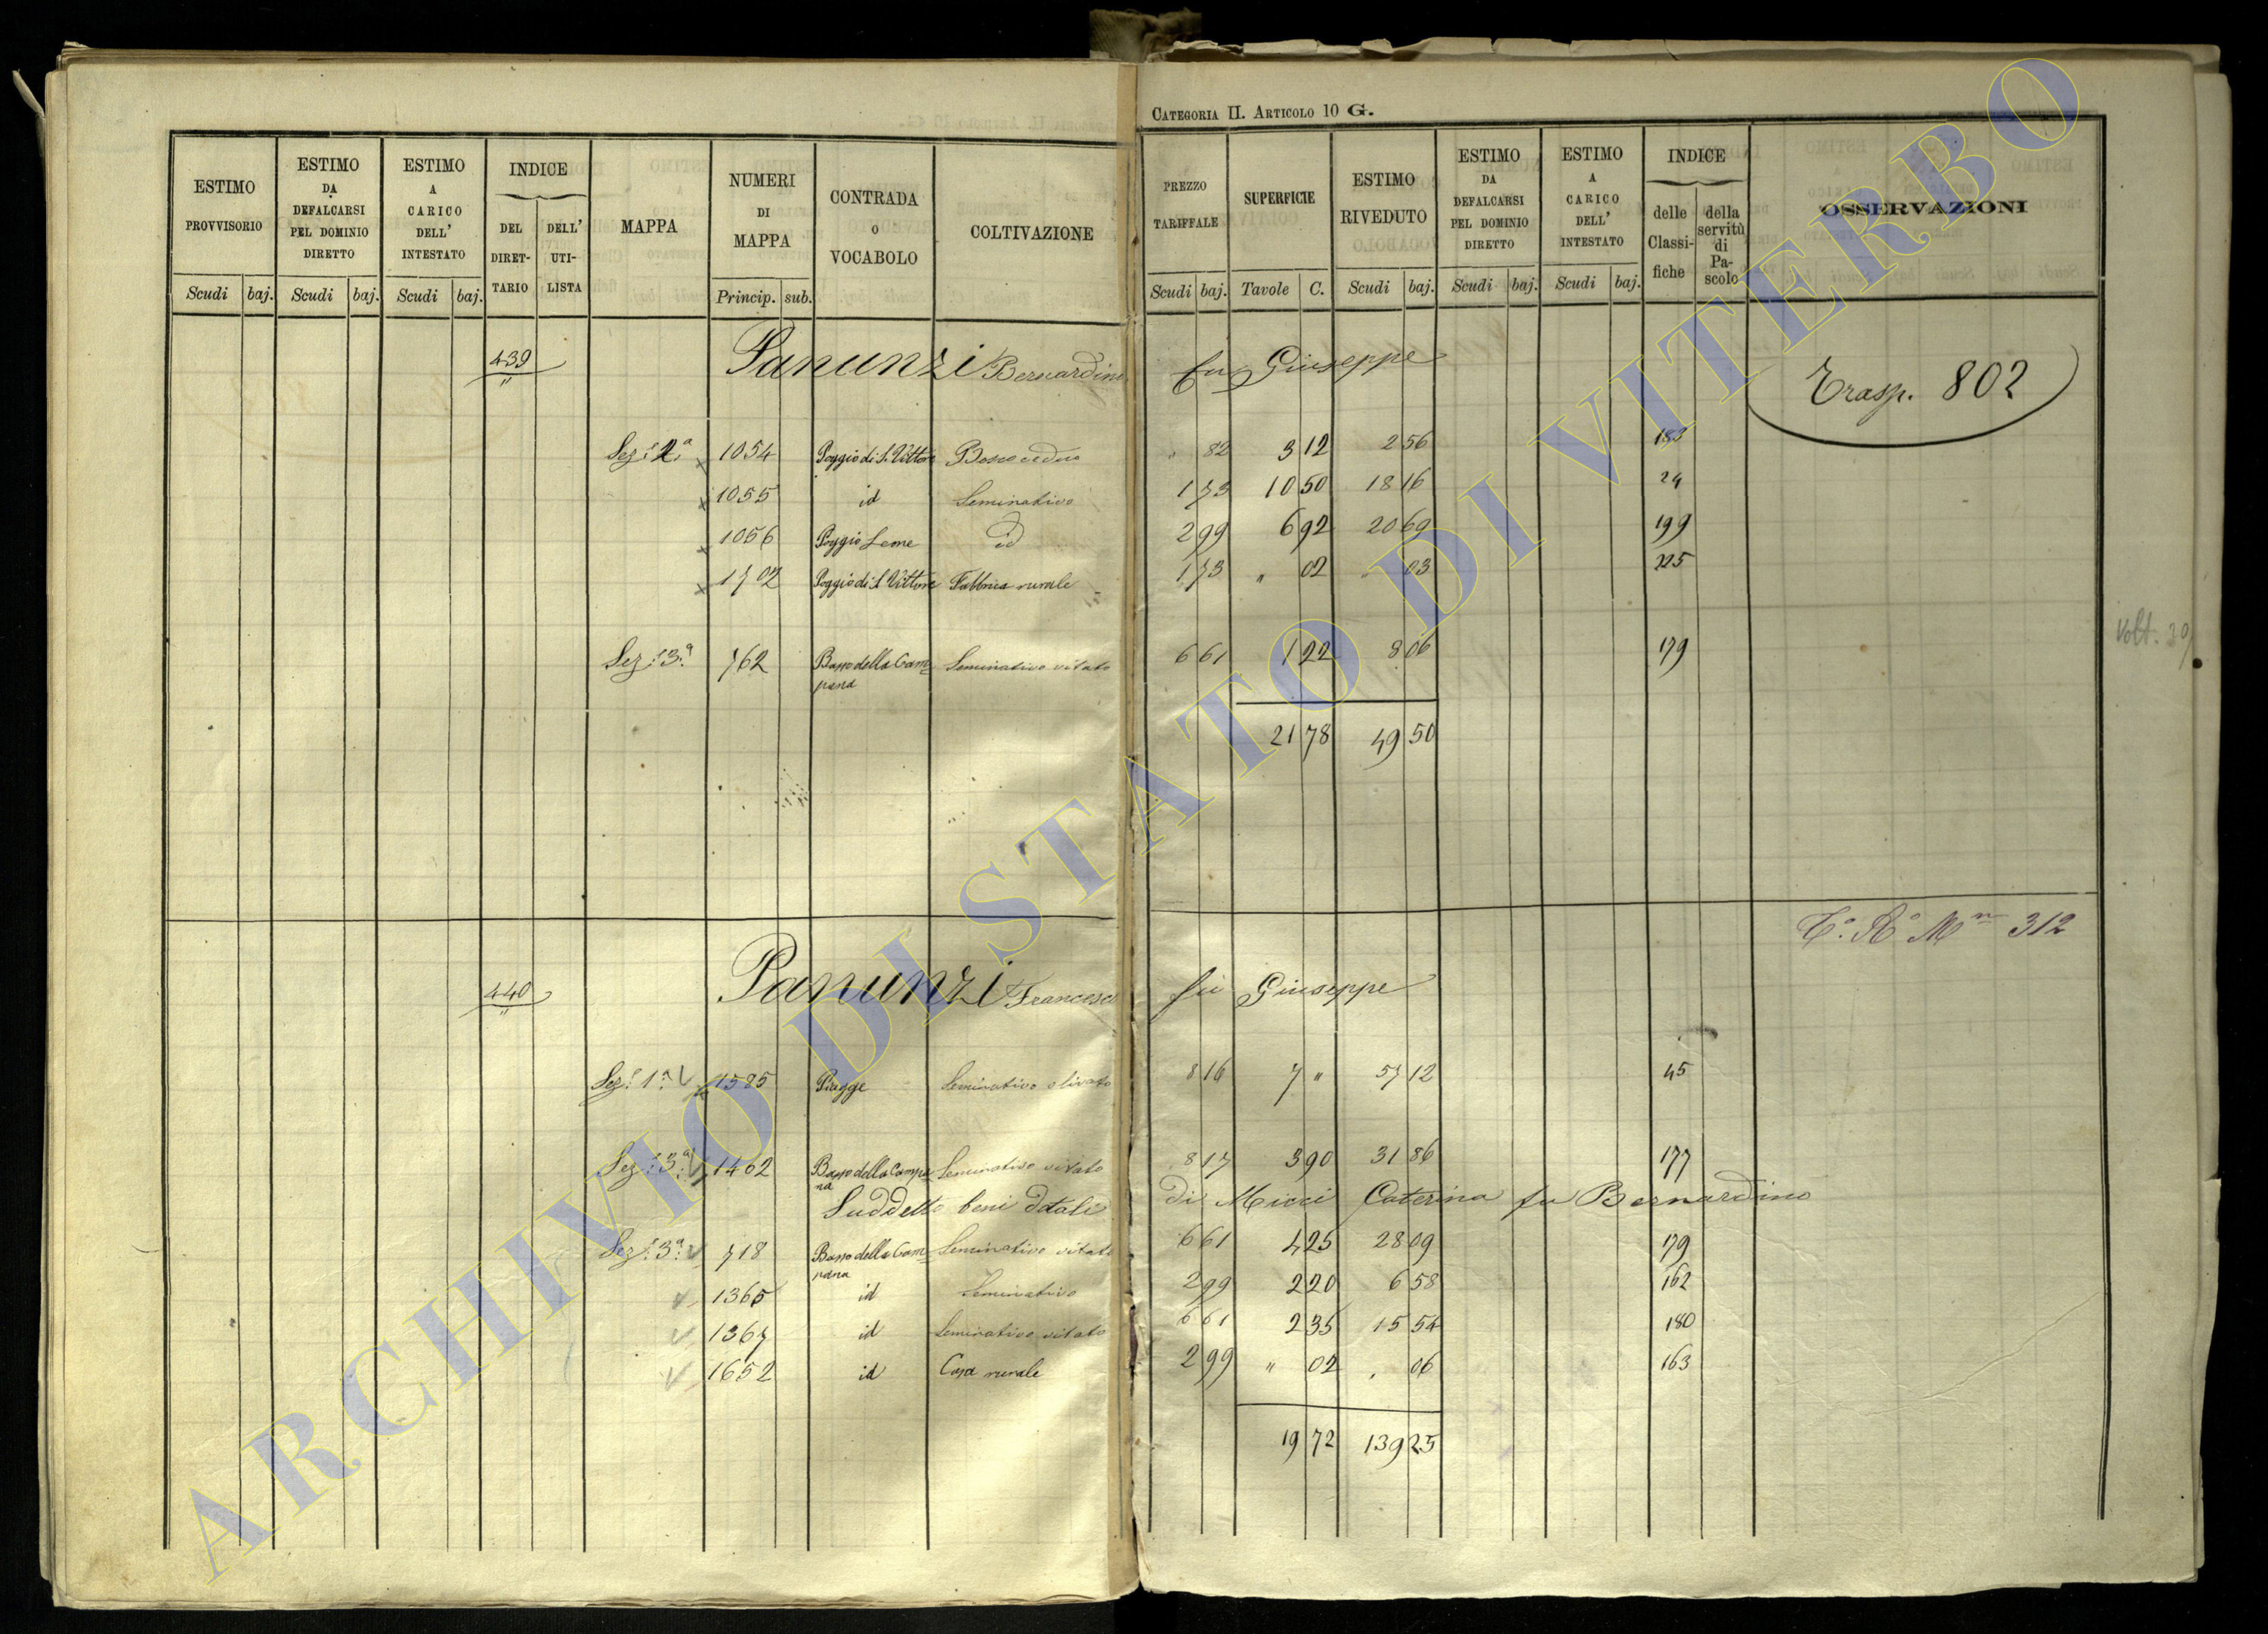 CATEGORIA II. ARTICOLO 10 G.
ESTIMO PROVVISORIO
ESTIMO DA DEFALCARSI PEL DOMINIO DIRETTO
ESTIMO A CARICO DELL' INTESTATO
INDICE
DEL DIRET-TARIO
DELL' UTI-LISTA
MAPPA
NUMERI DI MAPPA
CONTRADA O VOCABOLO
COLTIVAZIONE
PREZZO TARIFFALE
SUPERFICIE
ESTIMO RIVEDUTO
ESTIMO DA DEFALCARSI PEL DOMINIO DIRETTO
ESTIMO A CARICO DELL' INTESTATO
INDICE
delle Classi-fiche
della servitù di Pa-scolo
OSSERVAZIONI
Scudi baj. Scudi baj. Scudi baj. Princip. sub. Scudi baj. Tavole C. Scudi baj. Scudi baj. Scudi baj.
439 Panunzi Bernardino fu Giuseppe Trasp. 802
Sez. 2ª 1054 Poggio di S. Vittore Bosco ceduo " 82 3 12 2 56 183
1055 id Seminativo 1 73 10 50 18 16 24
1056 Poggio Leone id 2 99 6 92 20 69 199
1702 Poggio di S. Vittore Fabbrica rurale 1 73 " 02 " 03 225
Sez. 3ª 762 Basso della Cam=
pana Seminativo vitato 6 61 1 22 8 06 179
Volt. 39
21 78 49 50
Cº. Rº Mⁿ 312
440 Panunzi Francesco fu Giuseppe
Sez. 1ª 1585 Piagge Seminativo olivato 8 16 7 " 57 12 45
Sez. 3ª 1462 Basso della Campa=
na Seminativo vitato 8 17 3 90 31 86 177
Suddetto beni dotali di Micci Caterina fu Bernardino
Sez. 3ª 718 Basso della Cam=
pana Seminativo vitato 6 61 4 25 28 09 179
1365 id Seminativo 2 99 2 20 6 58 162
1367 id Seminativo vitato 6 61 2 35 15 54 180
1652 id Casa rurale 2 99 " 02 . 06 163
19 72 139 25
ARCHIVIO DI STATO DI VITERBO